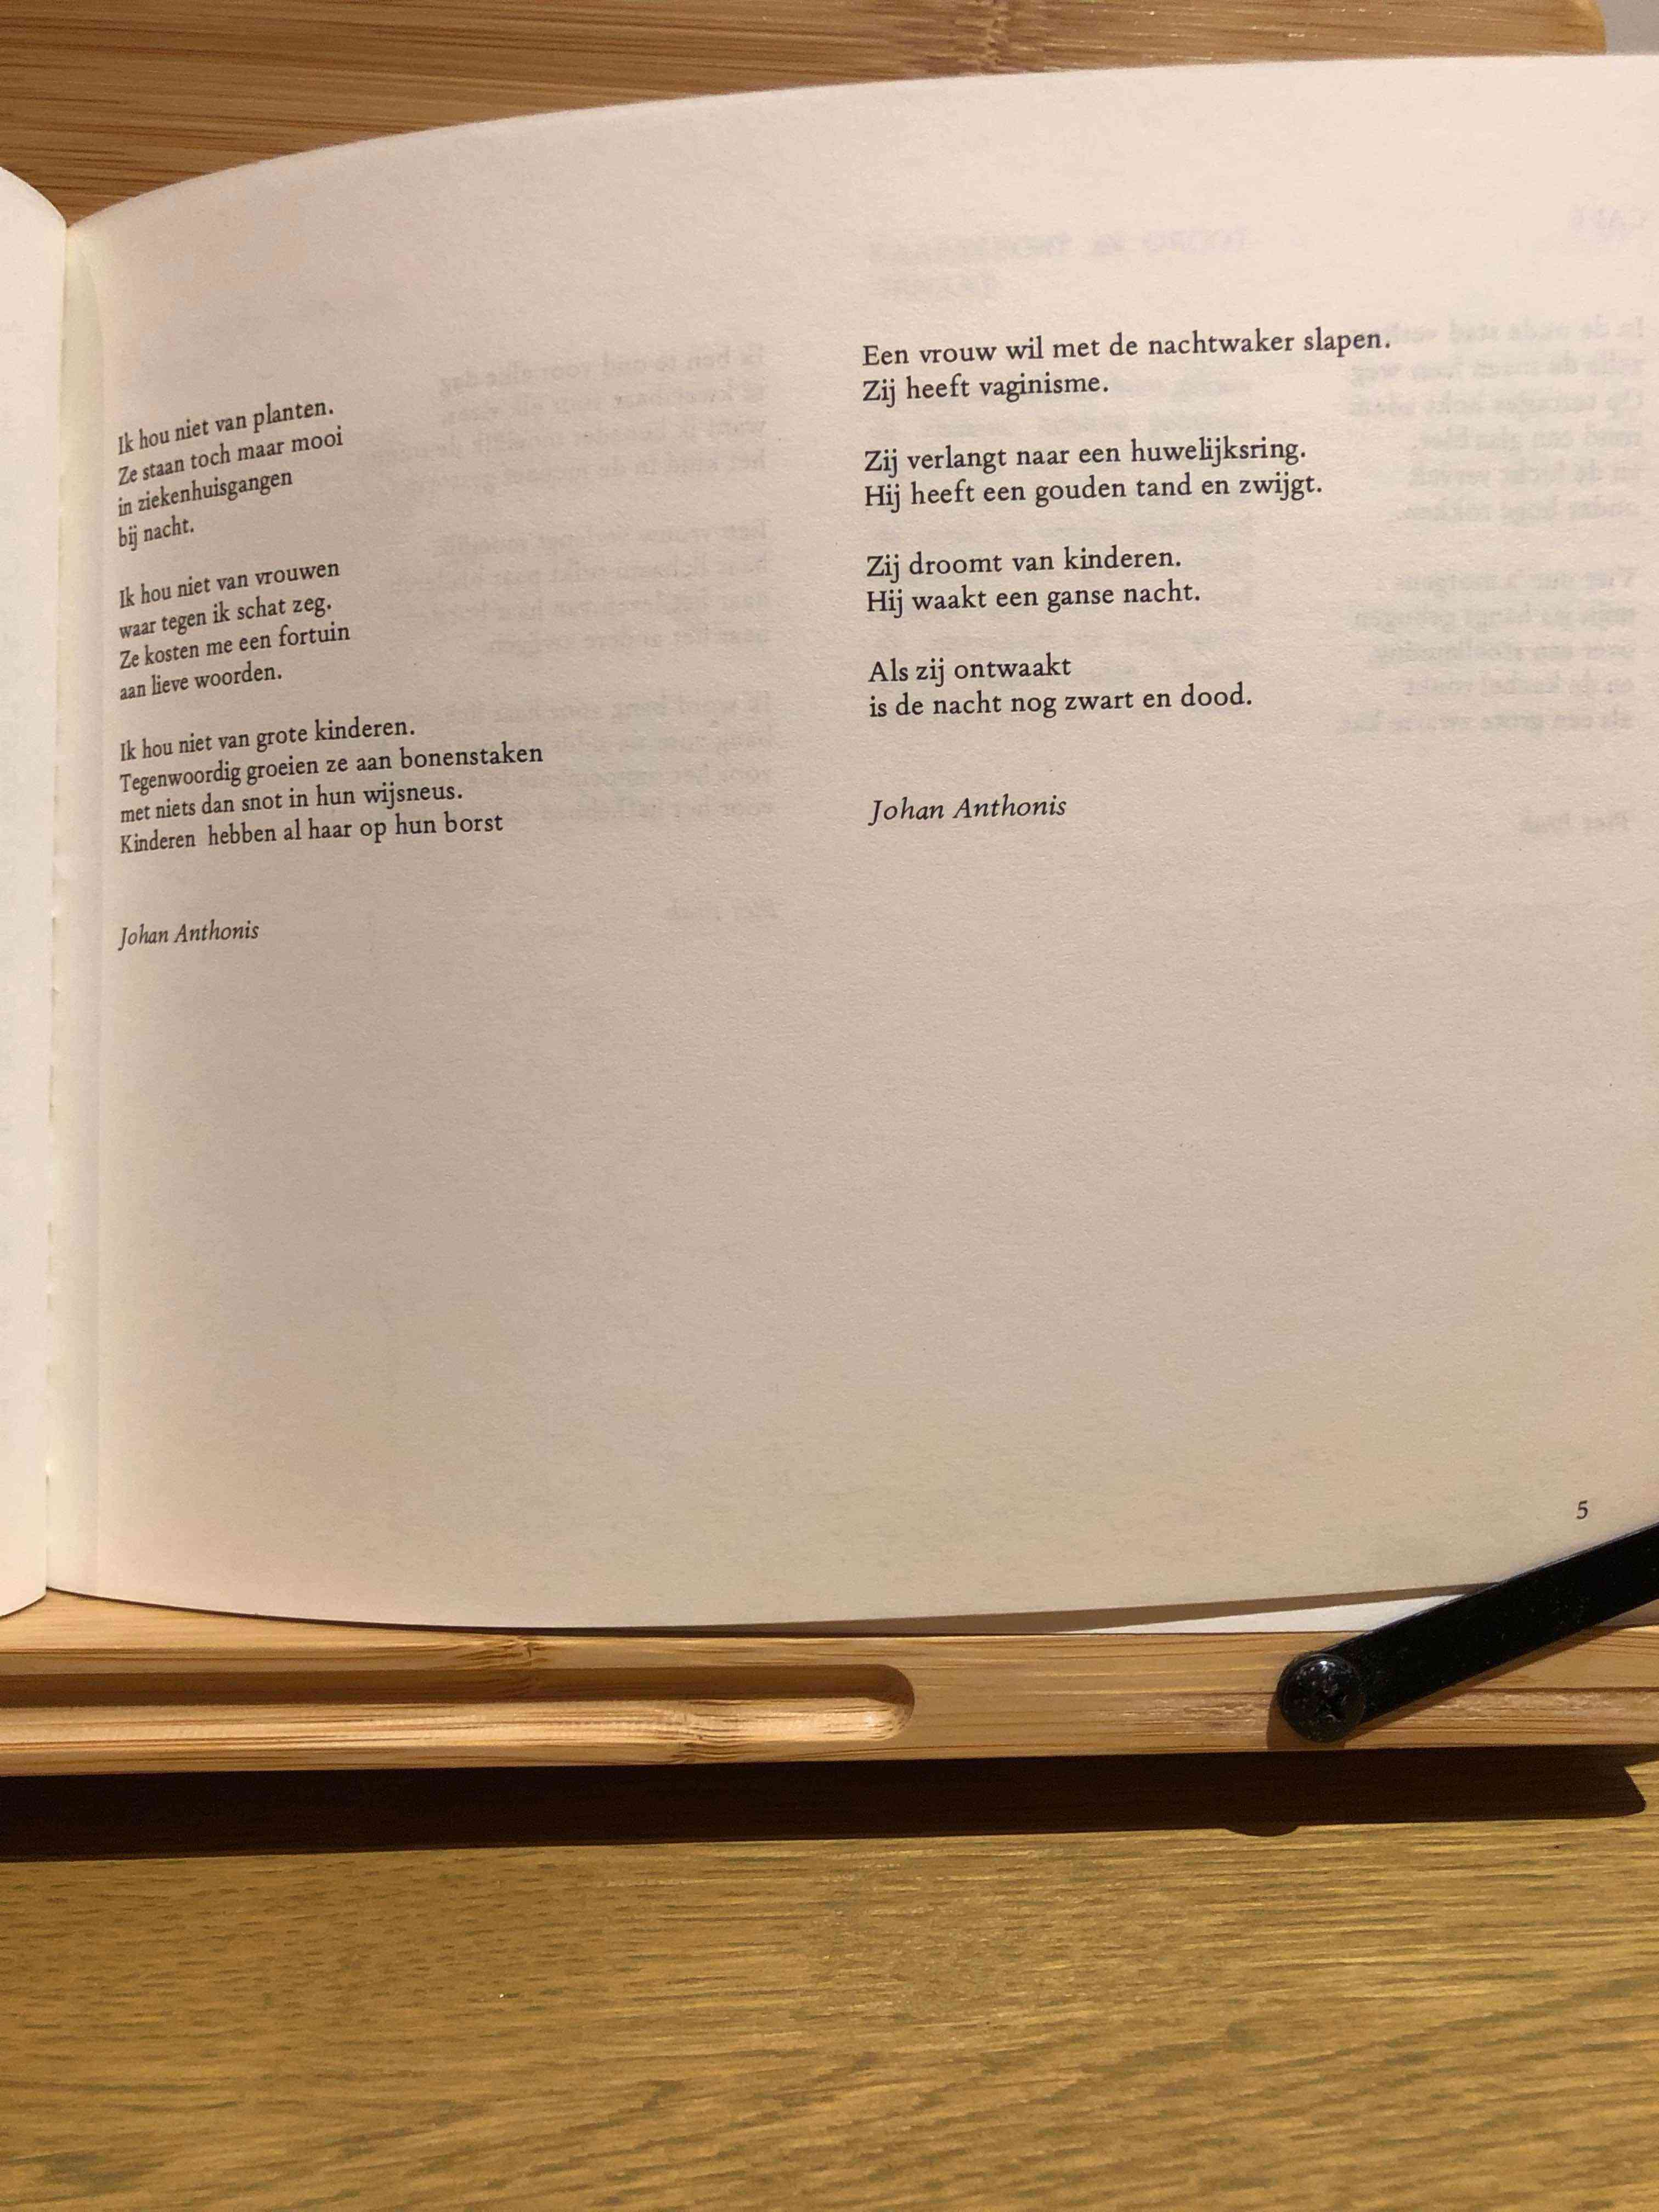 Ik hou niet van planten.
Ze staan toch maar mooi
in ziekenhuisgangen
bij nacht.

Ik hou niet van vrouwen
waar tegen ik schat zeg.
Ze kosten me een fortuin
aan lieve woorden.

Ik hou niet van grote kinderen.
Tegenwoordig groeien ze aan bonenstaken
met niets dan snot in hun wijsneus.
Kinderen hebben al haar op hun borst

Johan Anthonis

Een vrouw wil met de nachtwaker slapen.
Zij heeft vaginisme.

Zij verlangt naar een huwelijksring.
Hij heeft een gouden tand en zwijgt.

Zij droomt van kinderen.
Hij waakt een ganse nacht.

Als zij ontwaakt
is de nacht nog zwart en dood.

Johan Anthonis

5